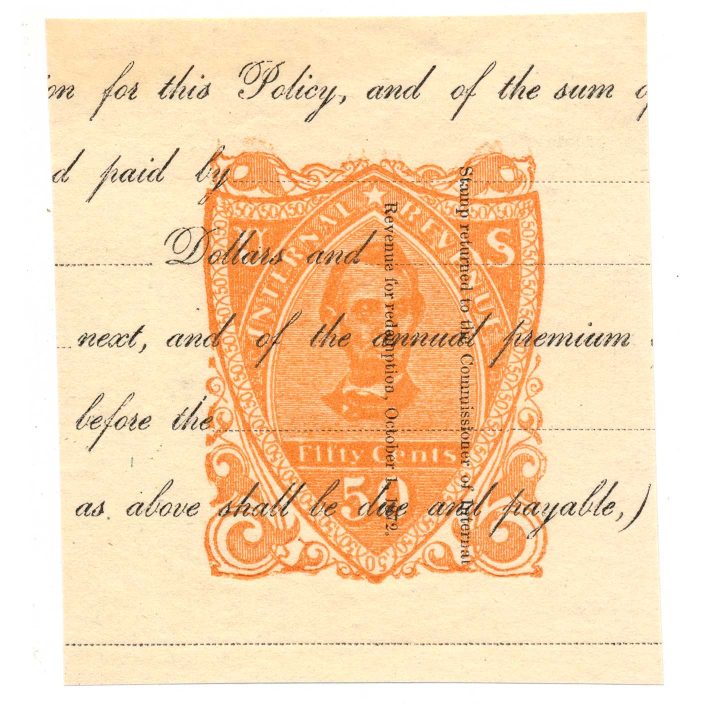 on for this Policy, and of the sum
d paid by
Dollars and
next, and of the annual premium
before the
as above shall be due and payable,)
U S
INTERNAL REVENUE
Fifty Cents
50
Stamp returned to the Commissioner of Internal
Revenue for redemption, October 1, 1872.